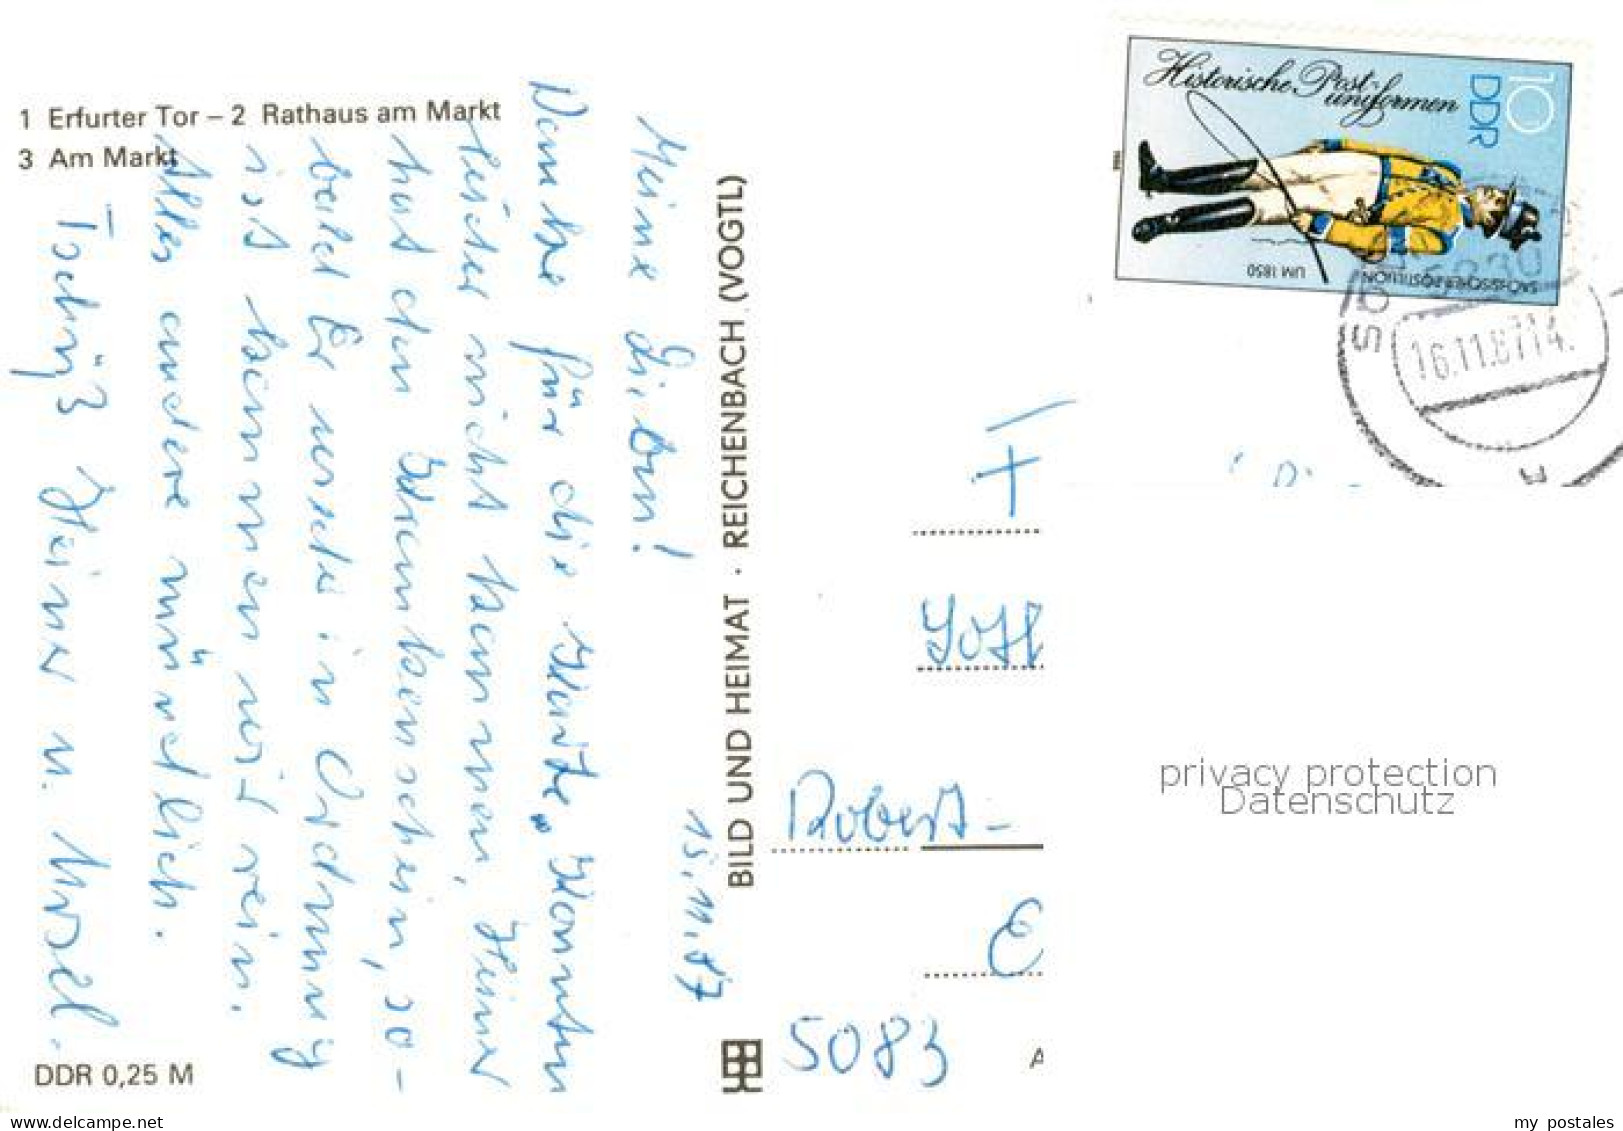 1 Erfurter Tor – 2 Rathaus am Markt
3 Am Markt
15.11.87
Meine Lieben!
Danke für die Karte. Konnten
leider nicht kommen, Heiner
hat den Krankenschein, so-
bald Er wieder in Ordnung
ist kommen wir rein.
Alles andere mündlich.
Tschüß Heiner u. Ursel.
DDR 0,25 M
BILD UND HEIMAT · REICHENBACH (VOGTL)
Historische Post-
uniformen
DDR
10
SÄCHSISCHER POSTILLION
UM 1850
16.11.87 14
F
Robert-
E
5083
A
privacy protection
Datenschutz
ansichtskarten-center-onlineshop
my postales